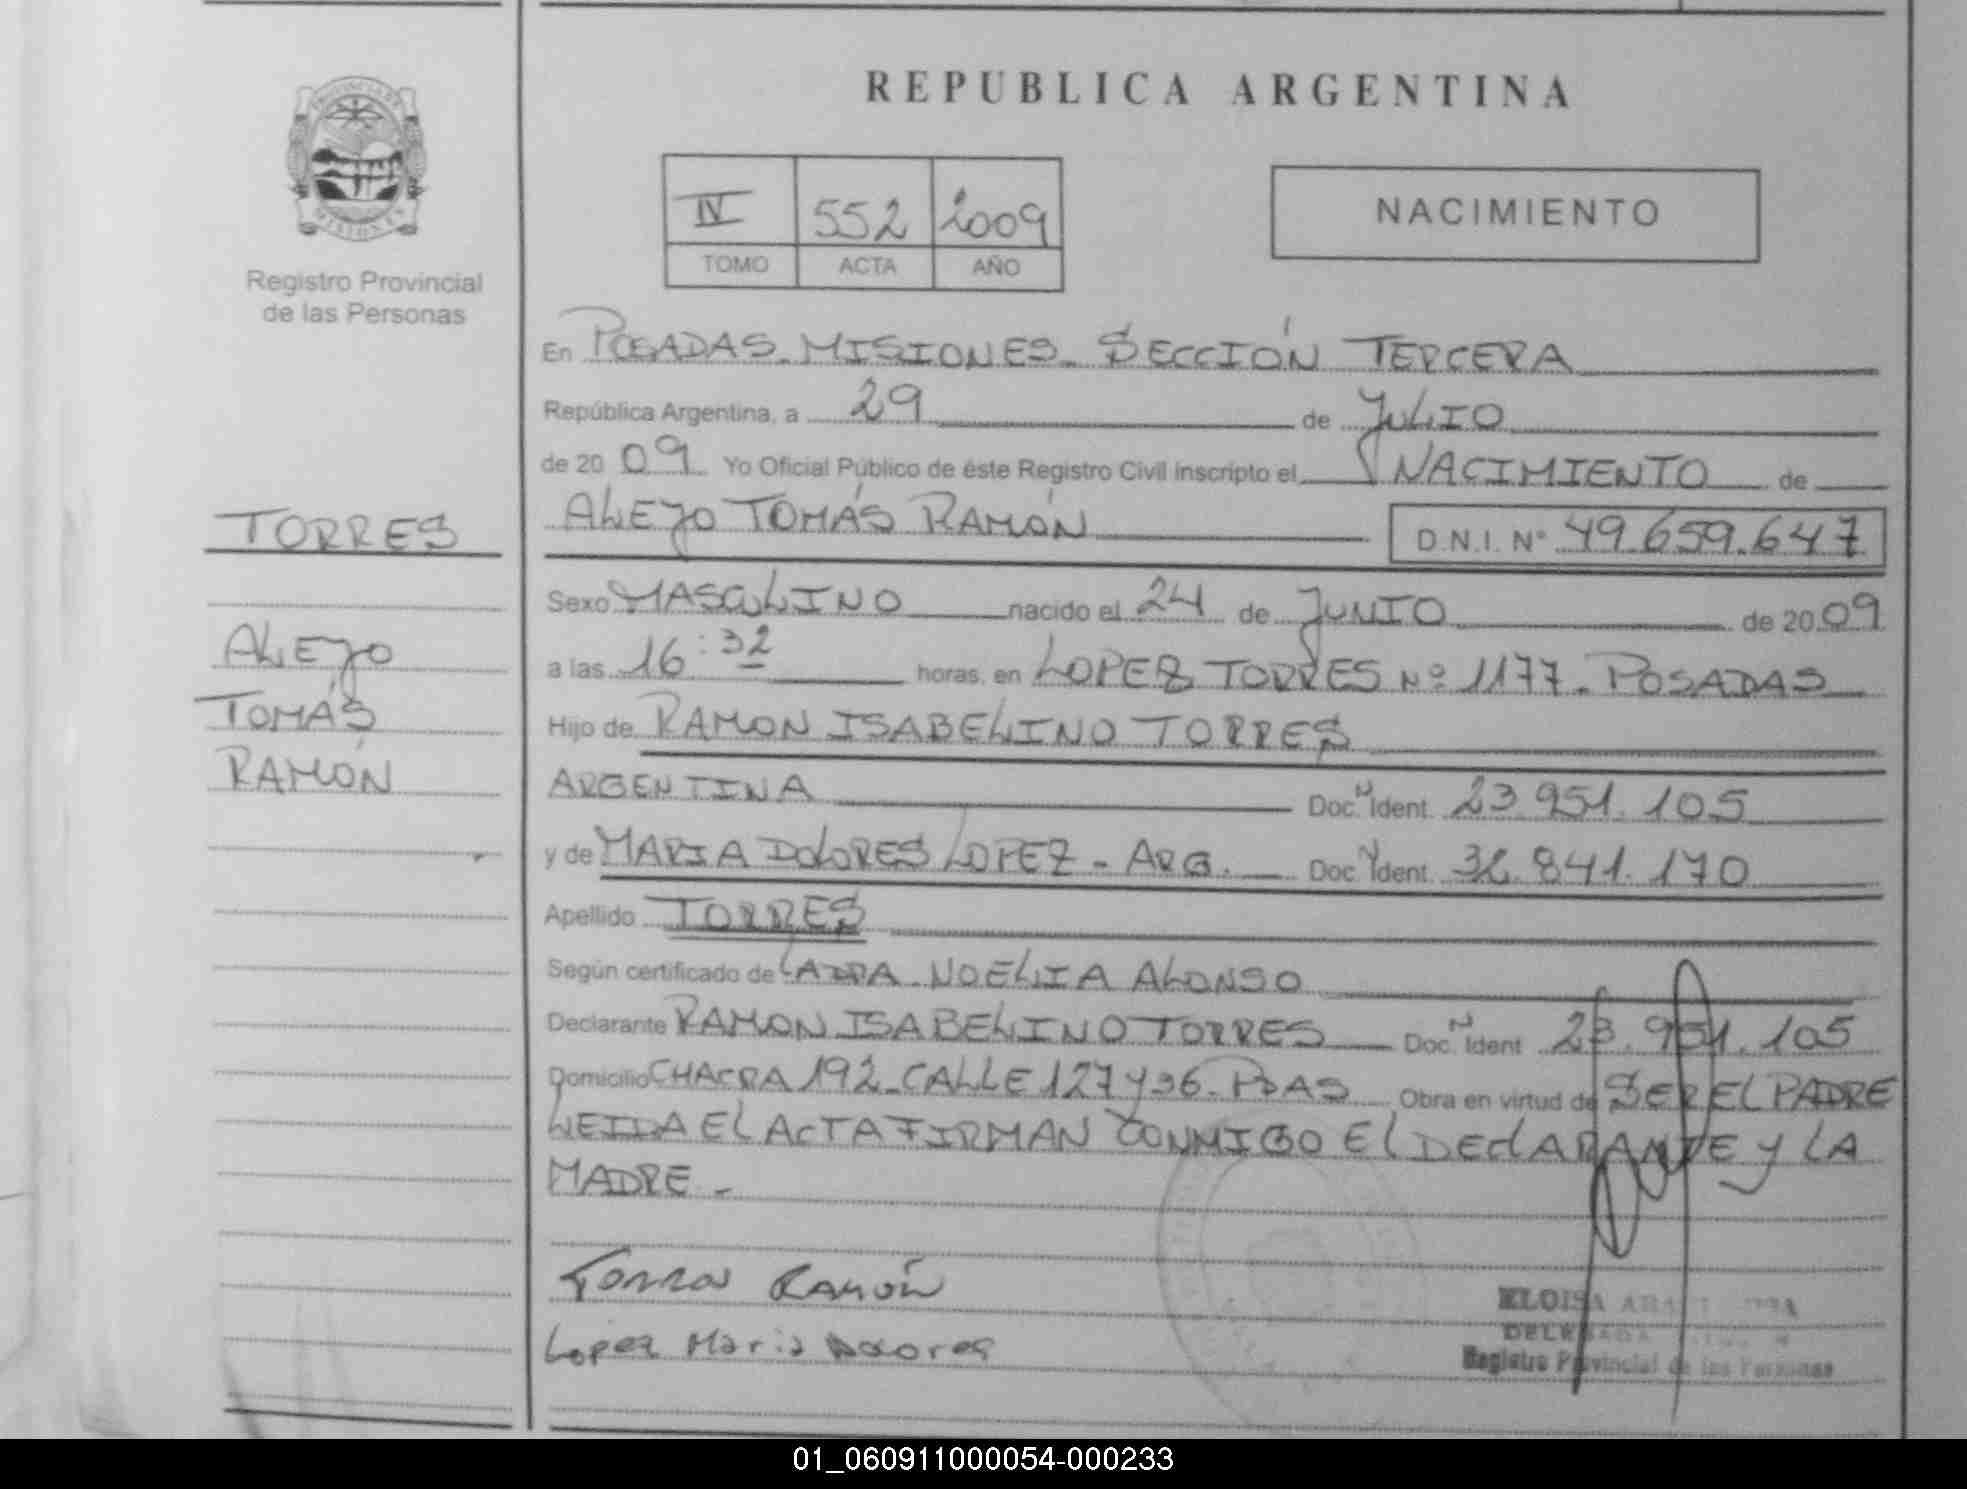 REPUBLICA ARGENTINA
PROVINCIA DE
MISIONES
Registro Provincial
de las Personas
IV 552 2009
TOMO ACTA AÑO
NACIMIENTO
En POSADAS. MISIONES. SECCIÓN TERCERA
República Argentina, a 29 de JULIO
de 20 09 Yo Oficial Público de éste Registro Civil inscripto el NACIMIENTO de
ALEJO TOMÁS RAMÓN D.N.I. Nº 49.659.647
TORRES
ALEJO
TOMÁS
RAMÓN
Sexo MASCULINO nacido el 24 de JUNIO de 20 09
a las 16:32 horas, en LOPEZ TORRES Nº 1177. POSADAS
Hijo de RAMON ISABELINO TORRES
ARGENTINA Doc. N Ident. 23.951.105
y de MARIA DOLORES LOPEZ - ARG. Doc. N Ident. 32.841.170
Apellido TORRES
Según certificado de NOELIA ALONSO
Declarante RAMON ISABELINO TORRES Doc. N Ident 23.951.105
Domicilio CHACRA 192 CALLE 127 y 36. PSAS Obra en virtud de SER EL PADRE
LEIDA EL ACTA FIRMAN CONMIGO EL DECLARANTE y LA
MADRE -
Torres Ramón
Lopez Maria Dolores
ELOISA
DELEGADA
Registro Provincial de las Personas
01_060911000054-000233